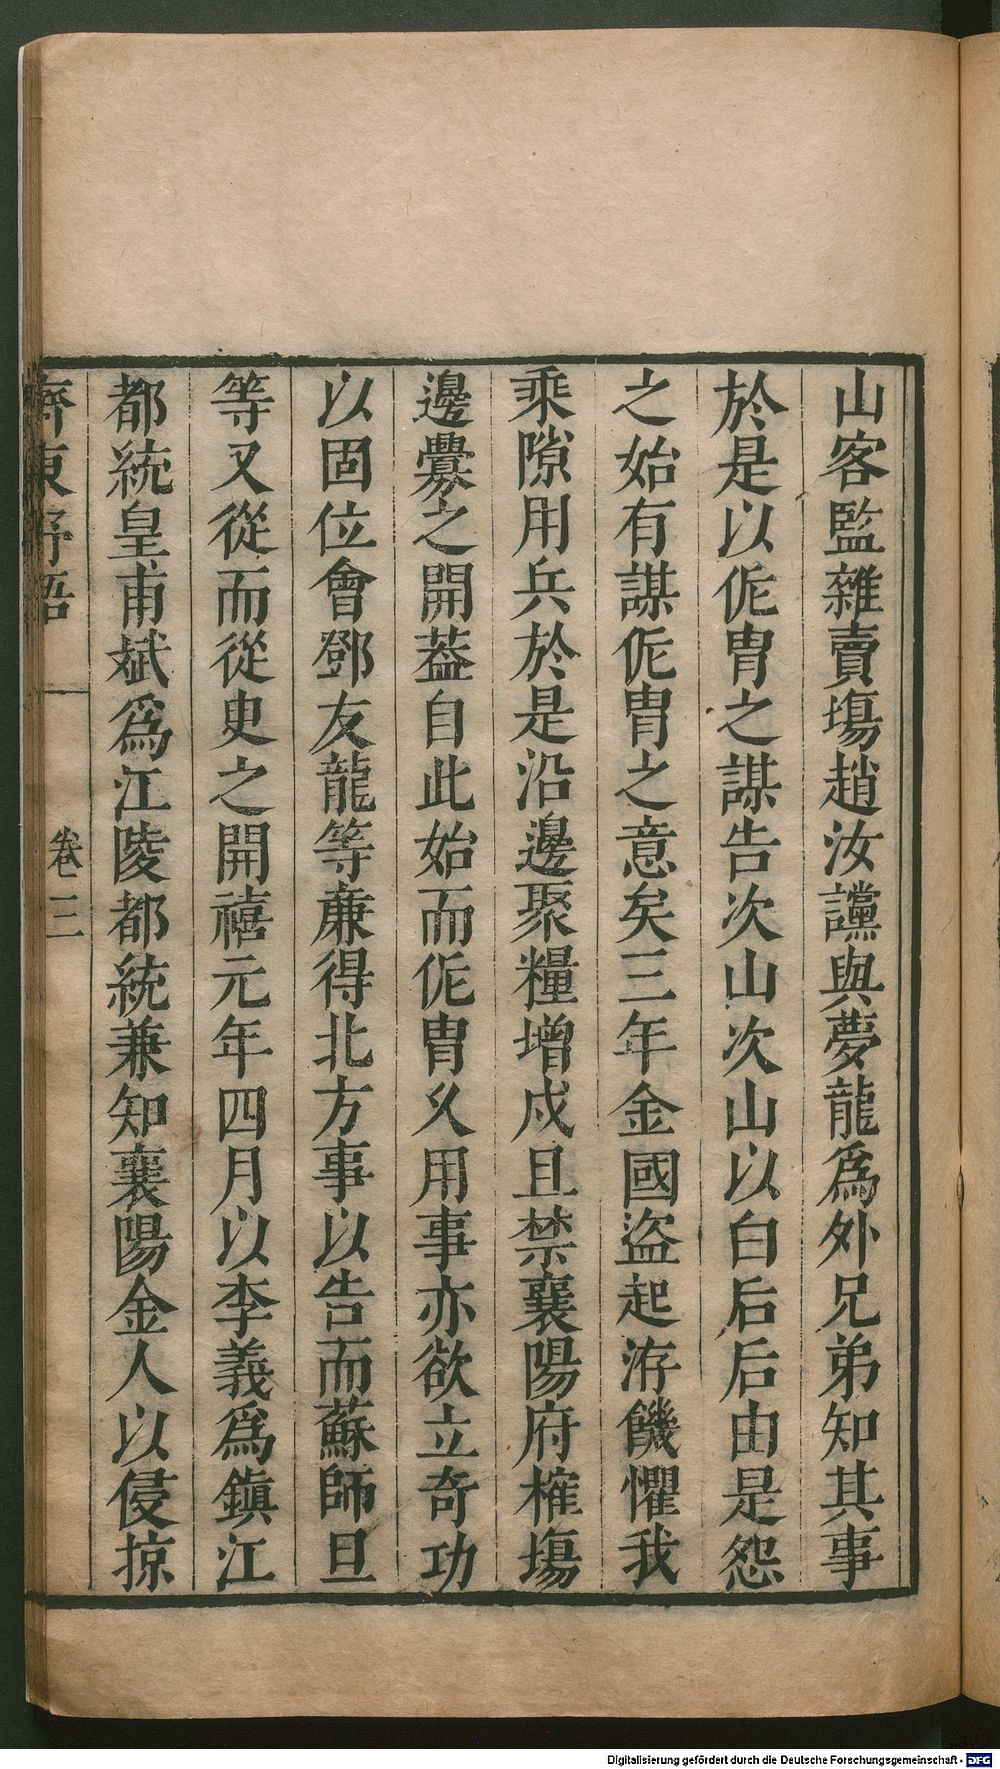 山客監雜賣塲趙汝讜與夢龍爲外兄弟知其事
於是以侂胄之謀告次山次山以白后后由是怨
之始有謀侂胄之意矣三年金國盜起洊饑懼我
乘隙用兵於是沿邊聚糧增戍且禁襄陽府榷塲
邊釁之開葢自此始而侂胄久用事亦欲立奇功
以固位會鄧友龍等亷得北方事以告而蘇師旦
等又從而從臾之開禧元年四月以李義爲鎮江
都統皇甫斌爲江陵都統兼知襄陽金人以侵掠
齊東野語
卷三
Digitalisierung gefördert durch die Deutsche Forschungsgemeinschaft - DFG